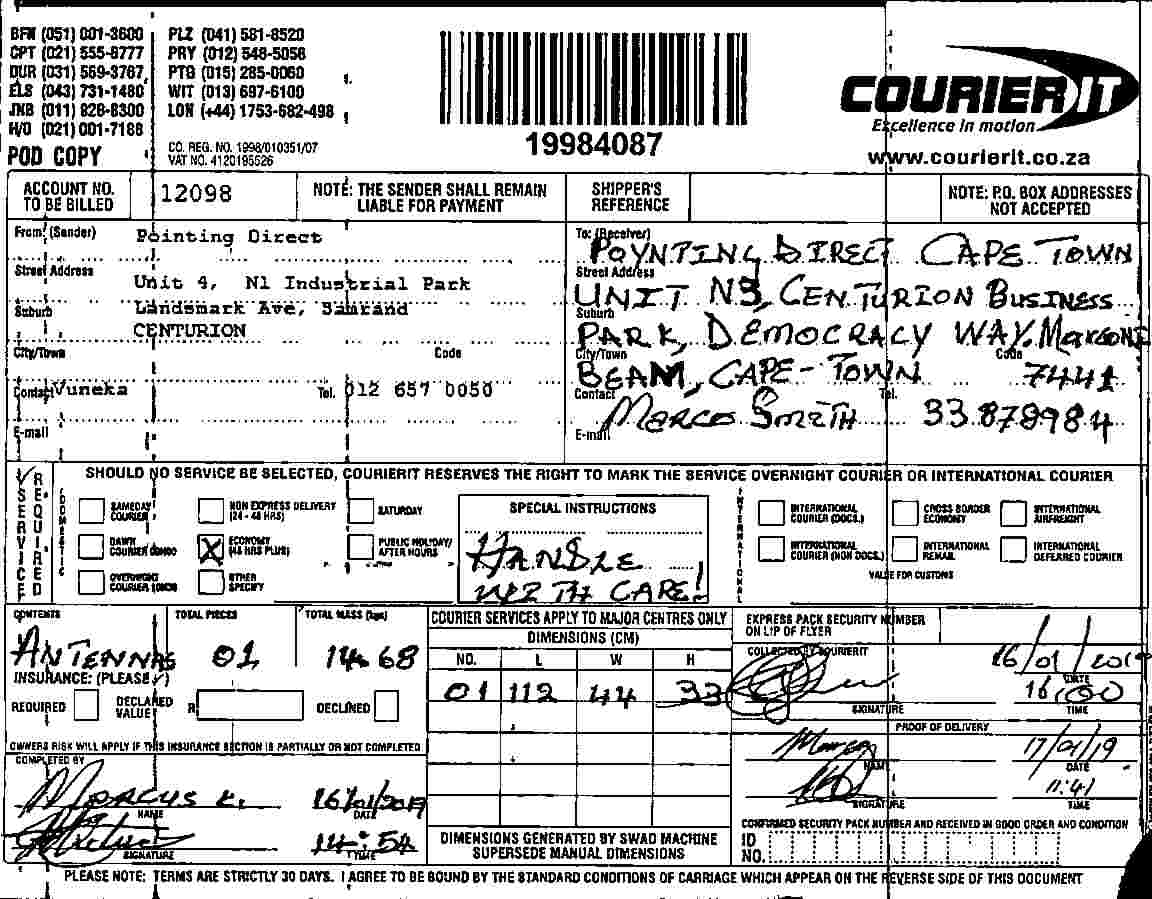 BFN (051) 001-3600 PLZ (041) 581-8520
CPT (021) 555-6777 PRY (012) 548-5058
DUR (031) 569-3767 PTB (015) 285-0060
ELS (043) 731-1480 WIT (013) 697-6100
JNB (011) 828-8300 LON (+44) 1753-682-498
H/O (021) 001-7188
POD COPY
CO. REG. NO. 1998/010351/07
VAT NO. 4120195526
19984087
COURIER IT
Excellence in motion
www.courierit.co.za
ACCOUNT NO. TO BE BILLED 12098
NOTE: THE SENDER SHALL REMAIN LIABLE FOR PAYMENT
SHIPPER'S REFERENCE
NOTE: P.O. BOX ADDRESSES NOT ACCEPTED
From: (Sender) Pointing Direct
Street Address Unit 4, N1 Industrial Park
Suburb Landsmark Ave, Samrand
CENTURION
City/Town Code
Contact Vuneka Tel. 012 657 0050
E-mail
To: (Receiver) POYNTING DIRECT CAPE TOWN
Street Address UNIT N3, CENTURION BUSINESS
Suburb PARK, DEMOCRACY WAY. MARCONI
City/Town BEAM, CAPE-TOWN Code 7441
Contact MARCO SMITH Tel. 33 878984
E-mail
SERVICE REQUIRED
SHOULD NO SERVICE BE SELECTED, COURIERIT RESERVES THE RIGHT TO MARK THE SERVICE OVERNIGHT COURIER OR INTERNATIONAL COURIER
DOMESTIC
SAMEDAY COURIER
NON EXPRESS DELIVERY (24 - 48 HRS)
SATURDAY
DAWN COURIER
ECONOMY (48 HRS PLUS)
X
PUBLIC HOLIDAY/ AFTER HOURS
OVERNIGHT COURIER
OTHER SPECIFY
SPECIAL INSTRUCTIONS
HANDLE
WITH CARE!
INTERNATIONAL
INTERNATIONAL COURIER (DOCS.)
CROSS BORDER ECONOMY
INTERNATIONAL AIRFREIGHT
INTERNATIONAL COURIER (NON DOCS.)
INTERNATIONAL REMAIL
INTERNATIONAL DEFERRED COURIER
VALUE FOR CUSTOMS
CONTENTS ANTENNAS
TOTAL PIECES 01
TOTAL MASS (kgs) 14.68
INSURANCE: (PLEASE ✓)
REQUIRED DECLARED VALUE R DECLINED
OWNERS RISK WILL APPLY IF THIS INSURANCE SECTION IS PARTIALLY OR NOT COMPLETED
COMPLETED BY
MARCUS K. 16/01/2019
NAME DATE
14:54
SIGNATURE TIME
COURIER SERVICES APPLY TO MAJOR CENTRES ONLY
DIMENSIONS (CM)
NO. L W H
01 112 44 33
DIMENSIONS GENERATED BY SWAD MACHINE SUPERSEDE MANUAL DIMENSIONS
EXPRESS PACK SECURITY NUMBER ON LIP OF FLYER
COLLECTED BY COURIERIT
16/01/2019
DATE
16:00
SIGNATURE TIME
PROOF OF DELIVERY
17/01/19
NAME DATE
11:41
SIGNATURE TIME
CONFIRMED SECURITY PACK NUMBER AND RECEIVED IN GOOD ORDER AND CONDITION
ID NO.
PLEASE NOTE: TERMS ARE STRICTLY 30 DAYS. I AGREE TO BE BOUND BY THE STANDARD CONDITIONS OF CARRIAGE WHICH APPEAR ON THE REVERSE SIDE OF THIS DOCUMENT